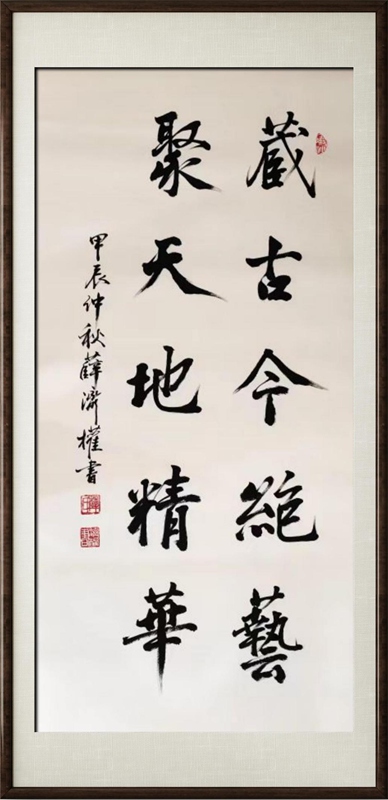 藏古今絕藝
聚天地精華
甲辰仲秋薛濟權書